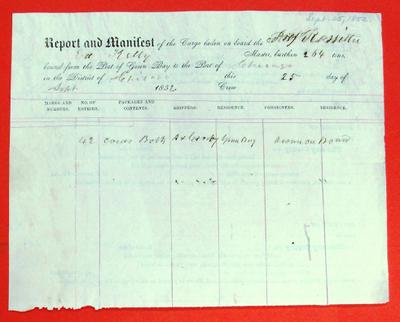 Sept. 25, 1852
Report and Manifest of the Cargo taken on board the
Ed Kelly Master, burthen 264 tons,
bound from the Port of Green Bay to the Port of Chicago
in the District of Chicago this 25 day of
Sept 1852 Crew
MARKS AND NUMBERS. NO. OF ENTRIES. PACKAGES AND CONTENTS. SHIPPERS. RESIDENCE. CONSIGNEES. RESIDENCE.
42 Cords Green Bay on Board